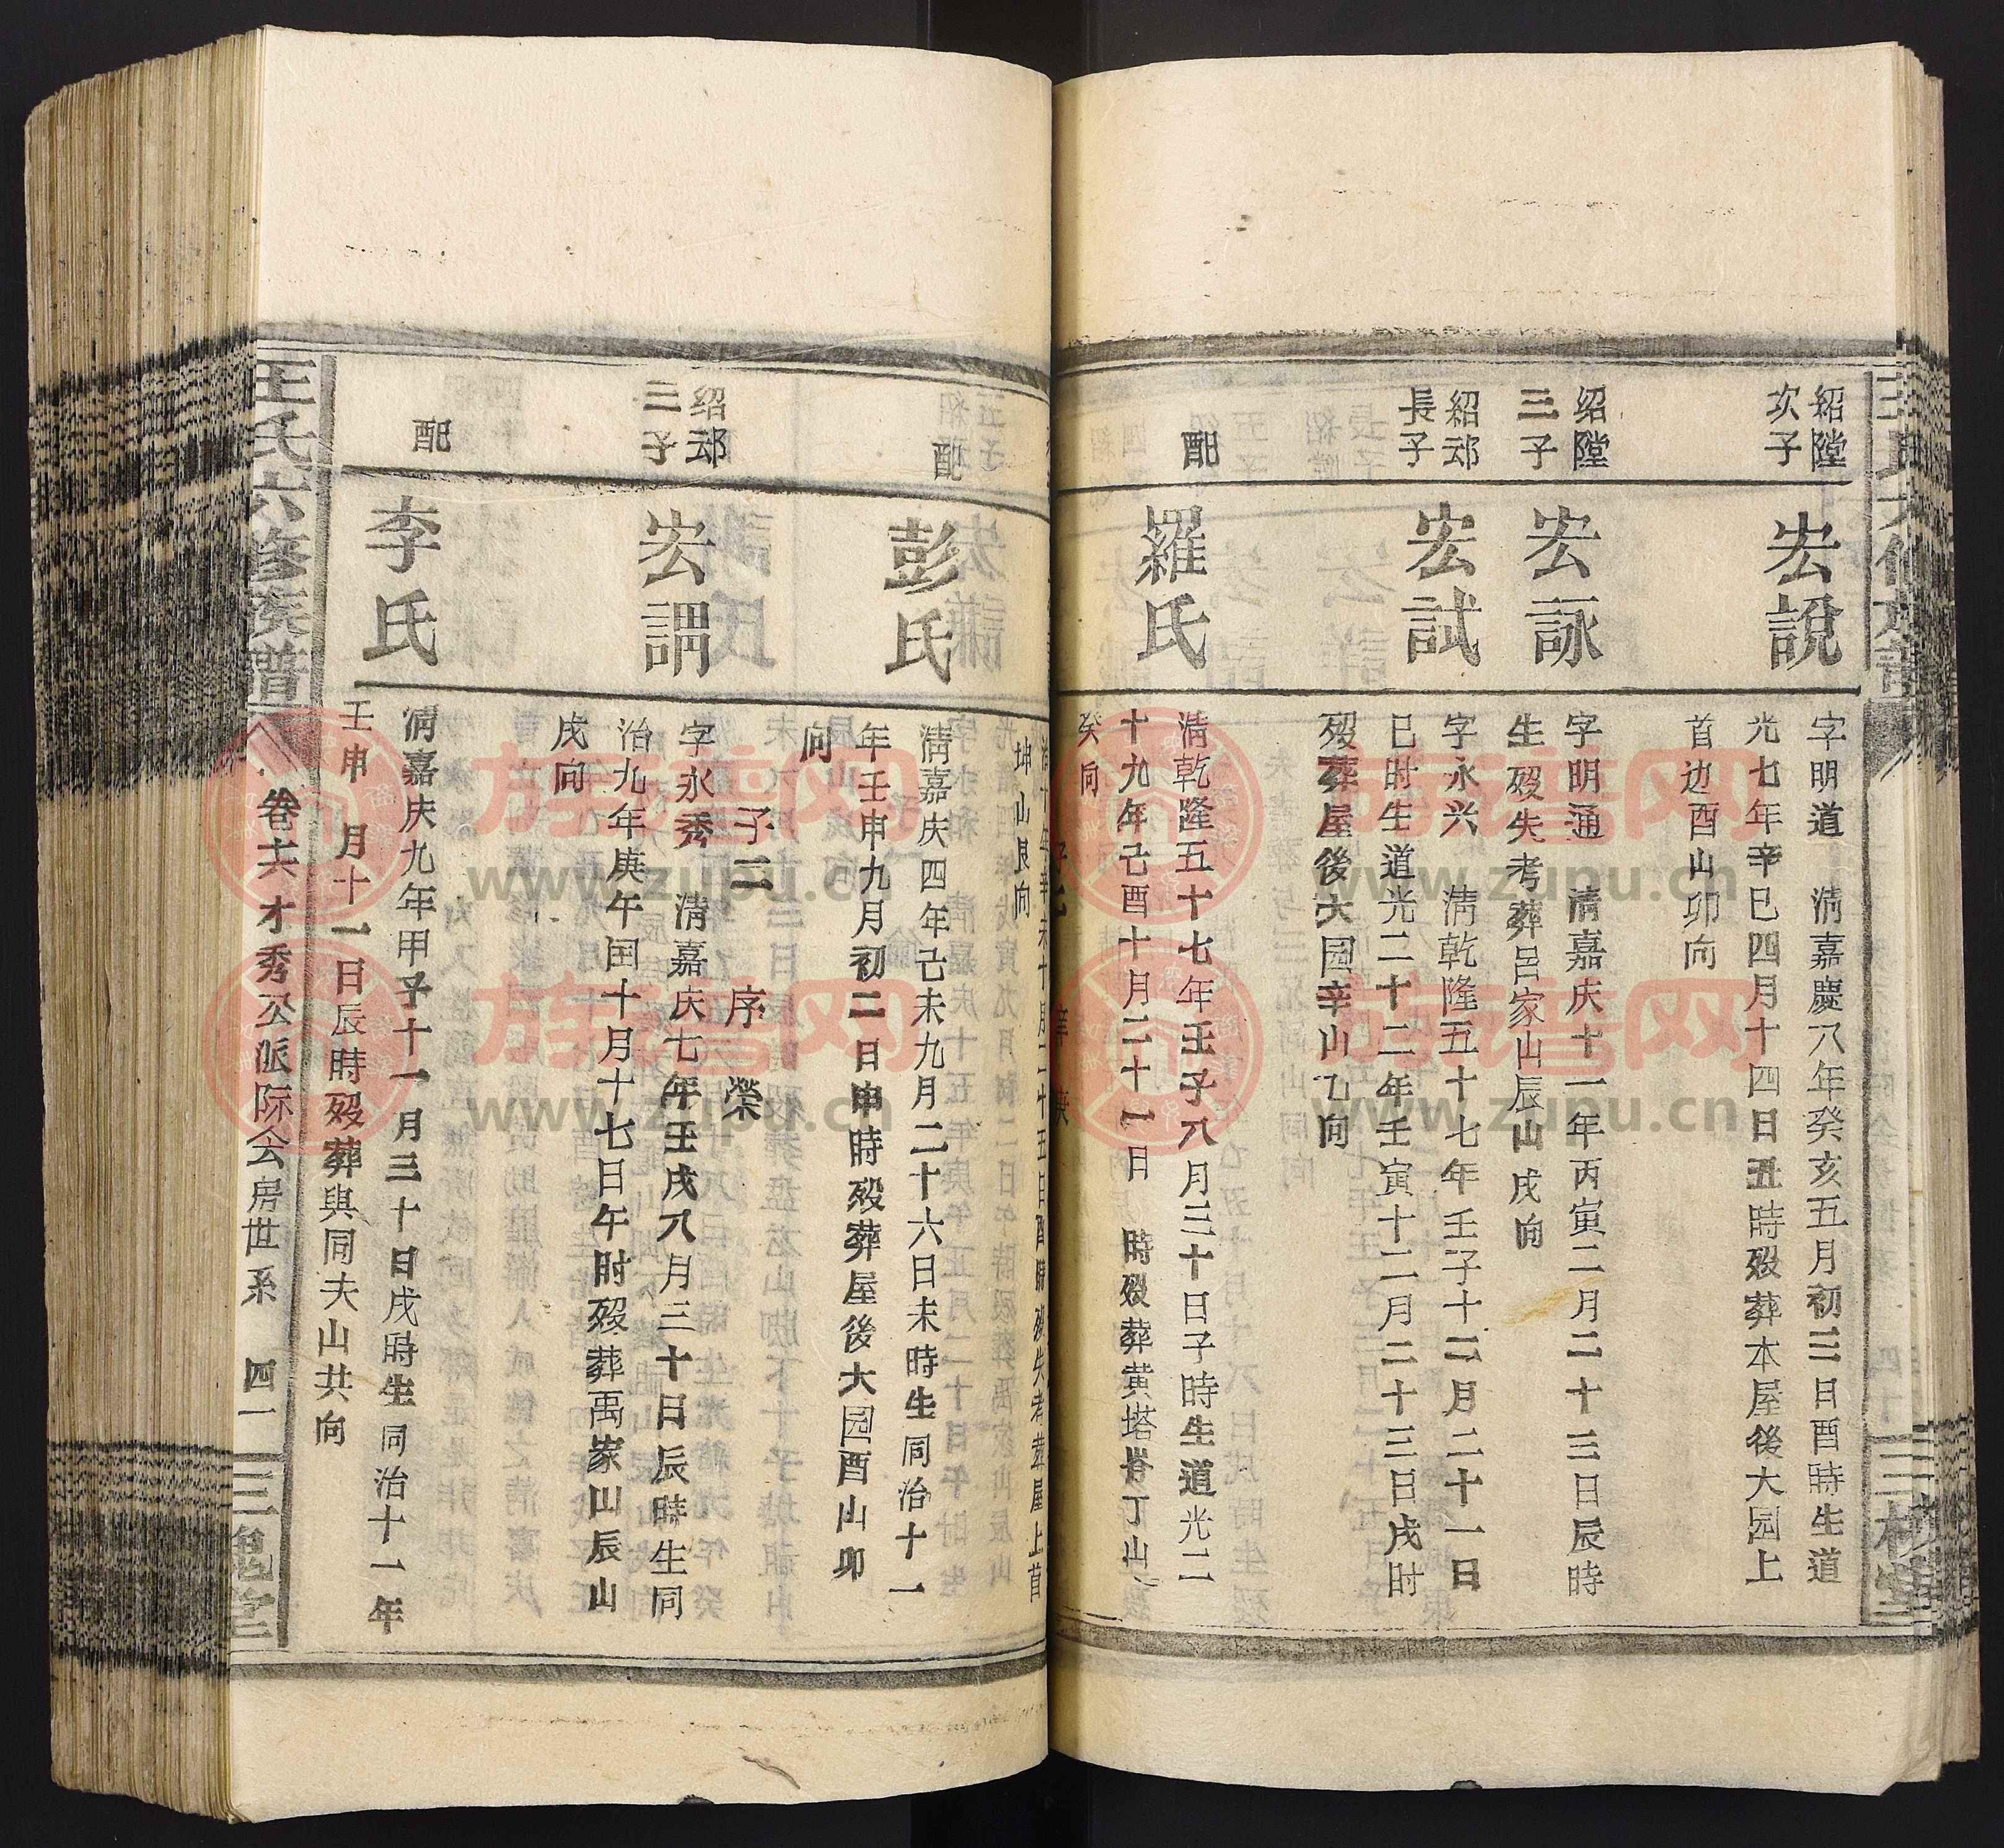 紹隚
次子
宏說
字明道 淸嘉慶八年癸亥五月初三日酉時生道
光七年辛巳四月十四日丑時歿葬本屋後大园上
首边酉山卯向
绍隚
三子
宏詠
字明通 淸嘉庆十一年丙寅二月二十三日辰時
生歿失考葬呂家山辰山戌向
紹邟
長子
宏試
字永兴 淸乾隆五十七年壬子十二月二十一日
巳时生道光二十二年壬寅十二月二十三日戌时
歿葬屋後大园辛山乙向
配
羅氏
淸乾隆五十七年壬子八月三十日子時生道光二
十九年己酉十月二十一日 時歿葬黄塔 丁山
癸向
坤山艮向
配
彭氏
淸嘉庆四年己未九月二十六日未時生同治十一
年壬申九月初二日申時歿葬屋後大园酉山卯
向
子二 序 榮
绍邟
三子
宏謂
字永秀 淸嘉庆七年壬戌八月三十日辰時生同
治九年庚午囯十月十七日午时歿葬禹家山辰山
戌向
配
李氏
淸嘉庆九年甲子十一月三十日戌時生同治十一年
壬申 月十一日辰時歿葬與同夫山共向
王氏六修族譜
卷六 才秀公派际会房世系 四一
三槐堂
族谱网
www.zupu.cn
族谱网
www.zupu.cn
族谱网
www.zupu.cn
族谱网
www.zupu.cn